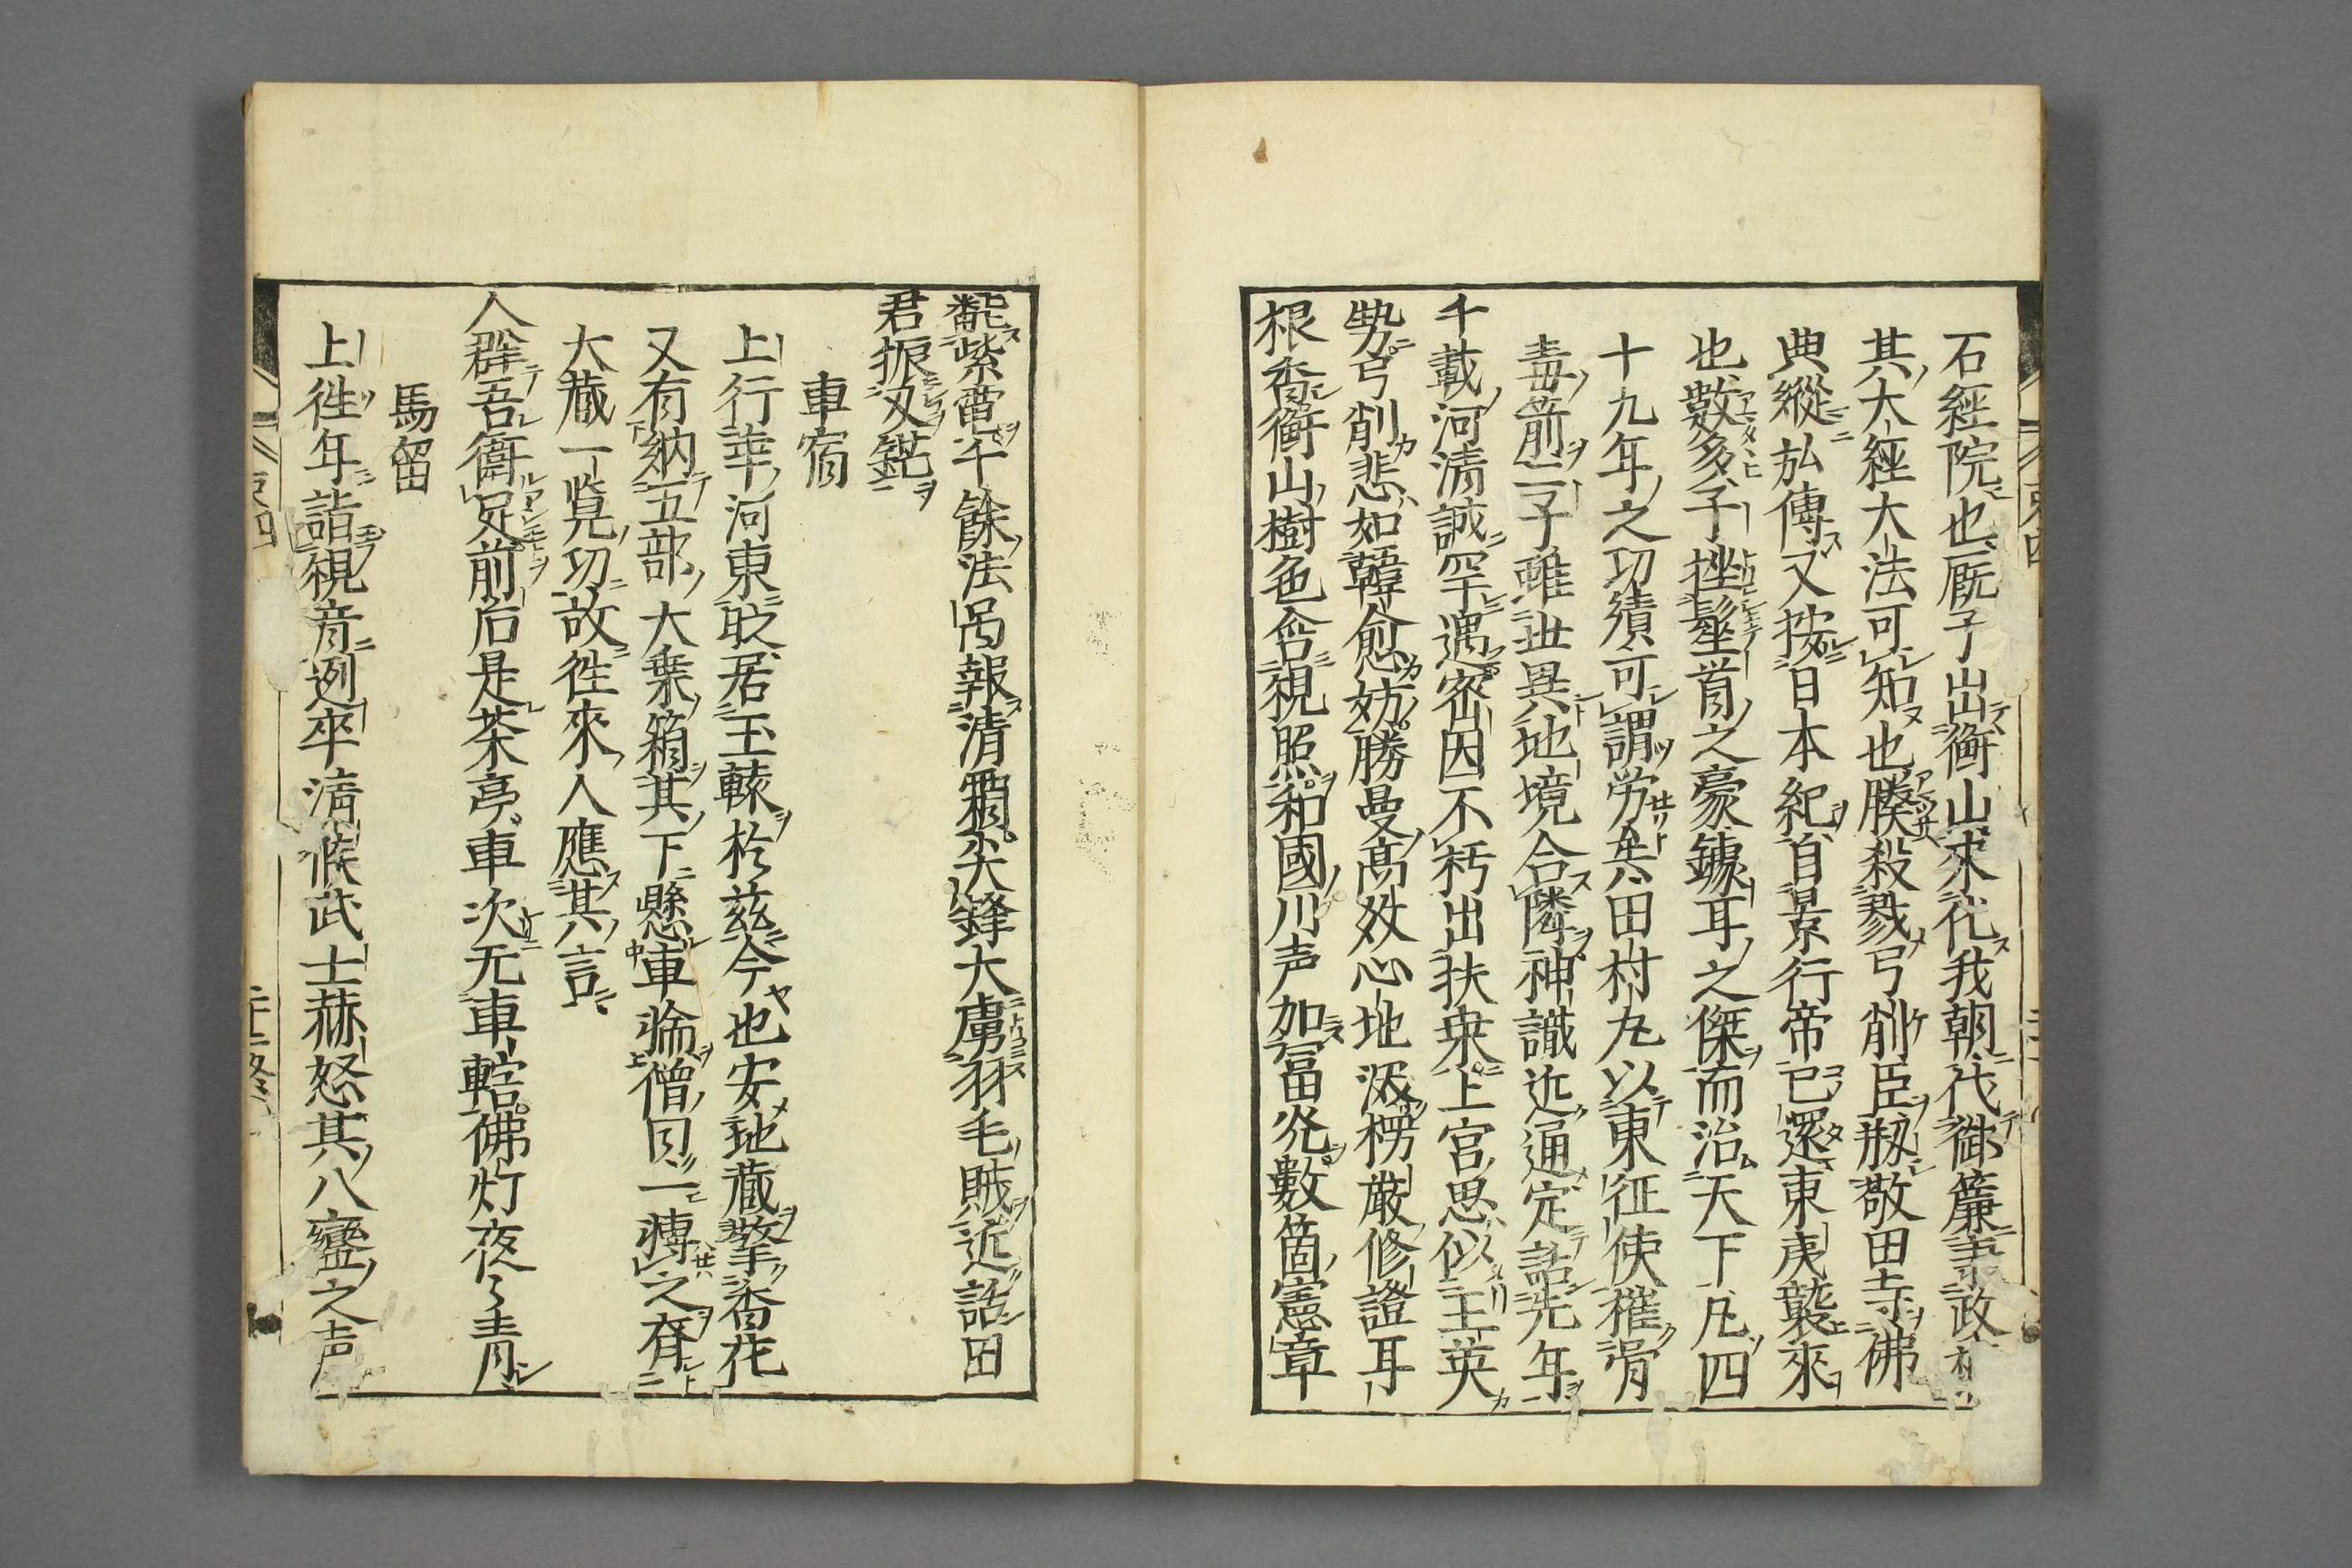 石經院也厩子出衡山求化我朝代御簾秉政
其大經大法可知也媵殺戮弓削臣剏敬田寺佛
典縱弘傳又按日本紀自景行帝已還東夷襲來
也數多子挫髽首之豪鐻耳之傑而治天下凡四
十九年之功績可謂労矣田村丸以東征使摧骨
毒箭二子雖世異地境合隣神識近通定話先年
千載河清誠罕遇密因不朽出扶桒上宮思似王英
勢弓削悲如韓愈妨勝曼髙效心地汲楞嚴修證耳
根香衡山樹色含視照和國川声加冨発數箇憲章
紫雷平餘法呂報清覇尖鋒大虜羽毛賊近話田
君振刄鋩
車宿
上行幸河東㫖居玉轅於茲今也安地藏擎香花
又有納五部大乗箱其下懸車輪僧曰一轉之脊
大藏一覧功故徃來人應其言
入群吾衞足前后是茶亭車次无車轄佛灯夜〻青
馬留
上徃年詣視音迾卒淸候武士赫怒其八蠻之声
東四